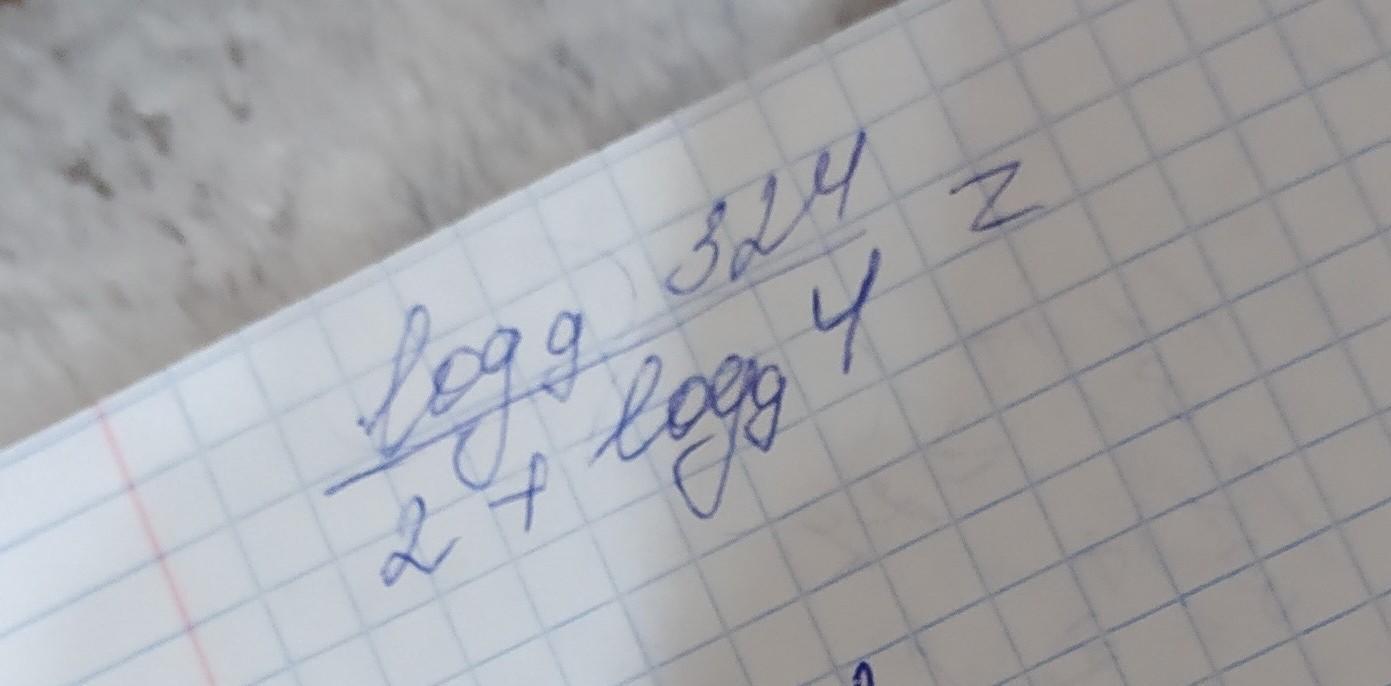 log₉ 324 =
2 + log₉ 4